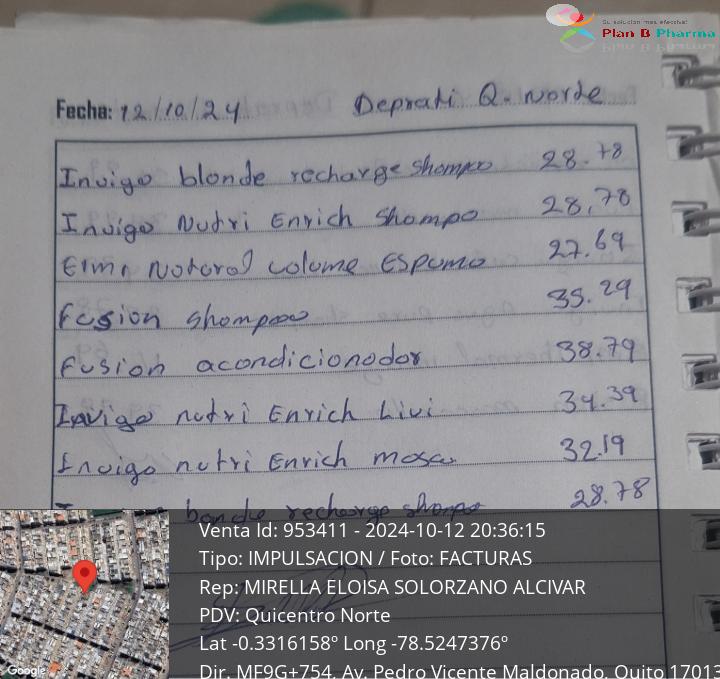 Su solucion mas efectiva!
Plan B Pharma
Fecha: 12/10/24 Deprati Q. norte
Invigo blonde recharge shampo 28.78
Invigo Nutri Enrich Shampo 28,78
Eimi Natural volume Espuma 27.69
Fusion shampoo 35.29
Fusion acondicionador 38.79
Invigo nutri Enrich Livi 34.39
Invigo nutri Enrich masca 32.19
bonde recharge shampo 28.78
Venta Id: 953411 - 2024-10-12 20:36:15
Tipo: IMPULSACION / Foto: FACTURAS
Rep: MIRELLA ELOISA SOLORZANO ALCIVAR
PDV: Quicentro Norte
Lat -0.3316158° Long -78.5247376°
Dir. MF9G+754, Av. Pedro Vicente Maldonado, Quito 17013
Google